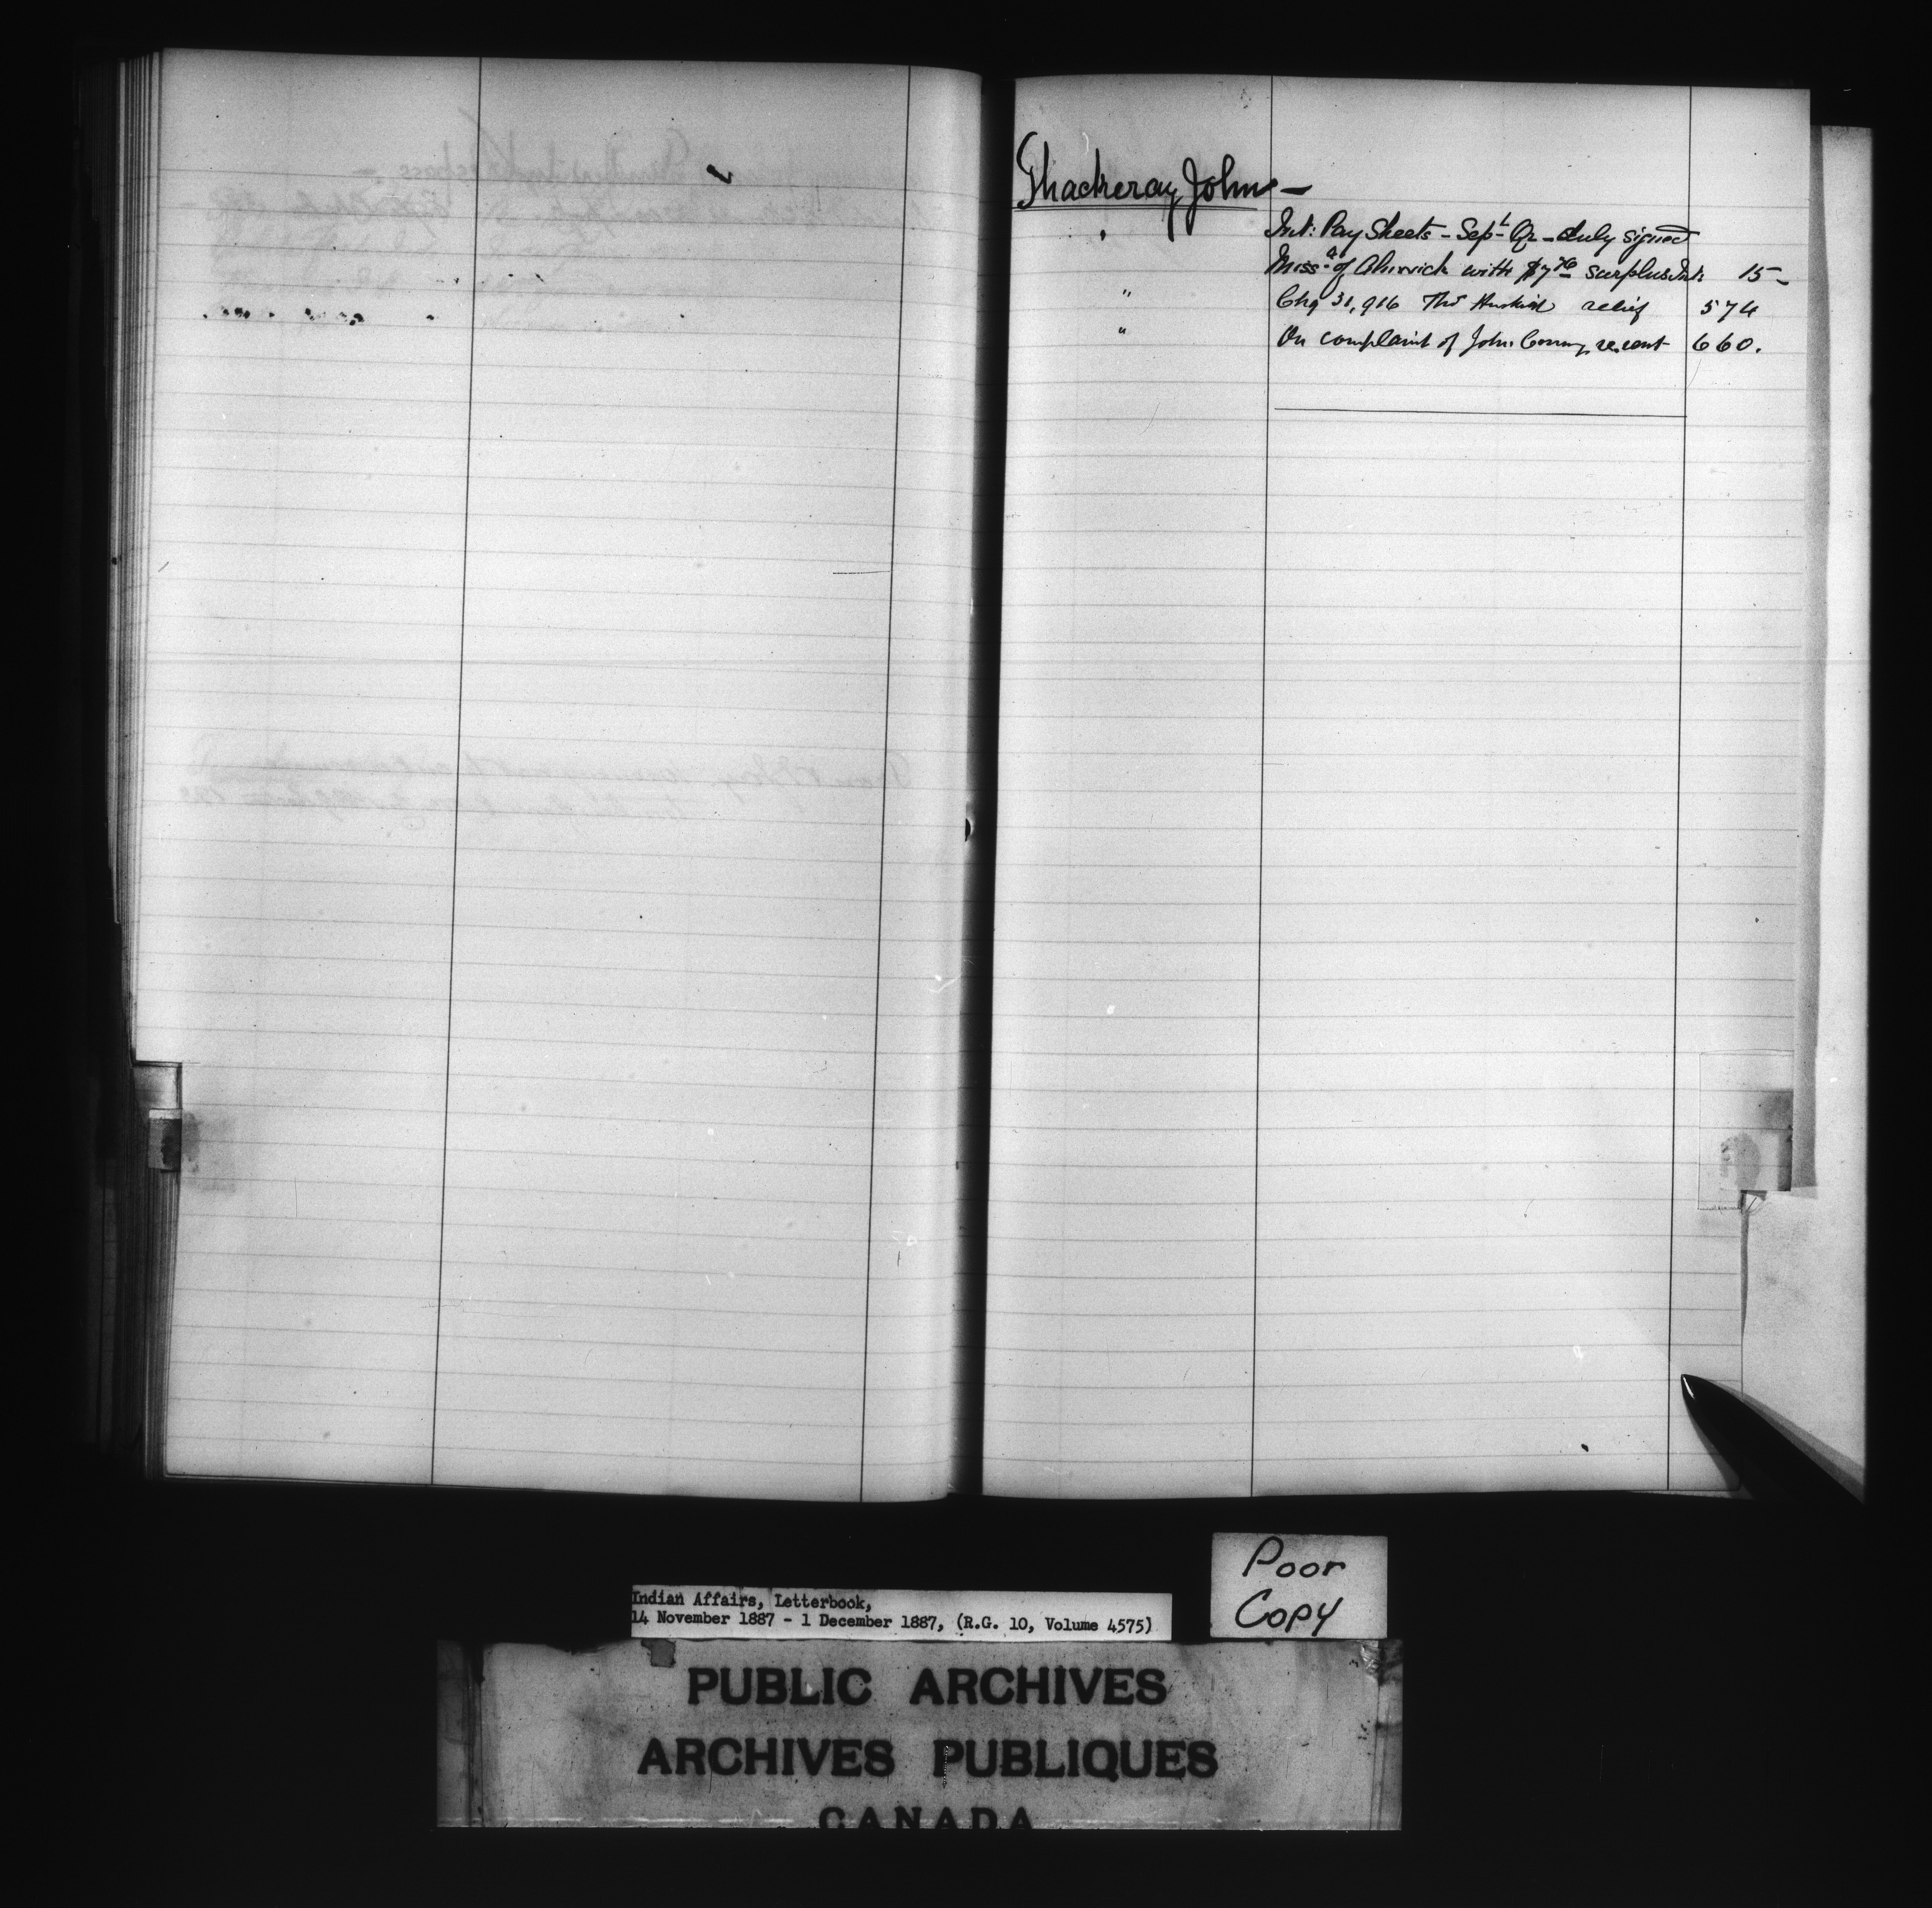 Thackeray John —
" Int: Pay Sheets - Sept Qr - duly signed
Miss.a of Alnwick with $7.76 surplus Int: 15 -
" Chq 31,916 Thos relief 574
" On complaint of John re. rent 660.
Indian Affairs, Letterbook,
14 November 1887 - 1 December 1887, (R.G. 10, Volume 4575)
Poor
Copy
PUBLIC ARCHIVES
ARCHIVES PUBLIQUES
CANADA